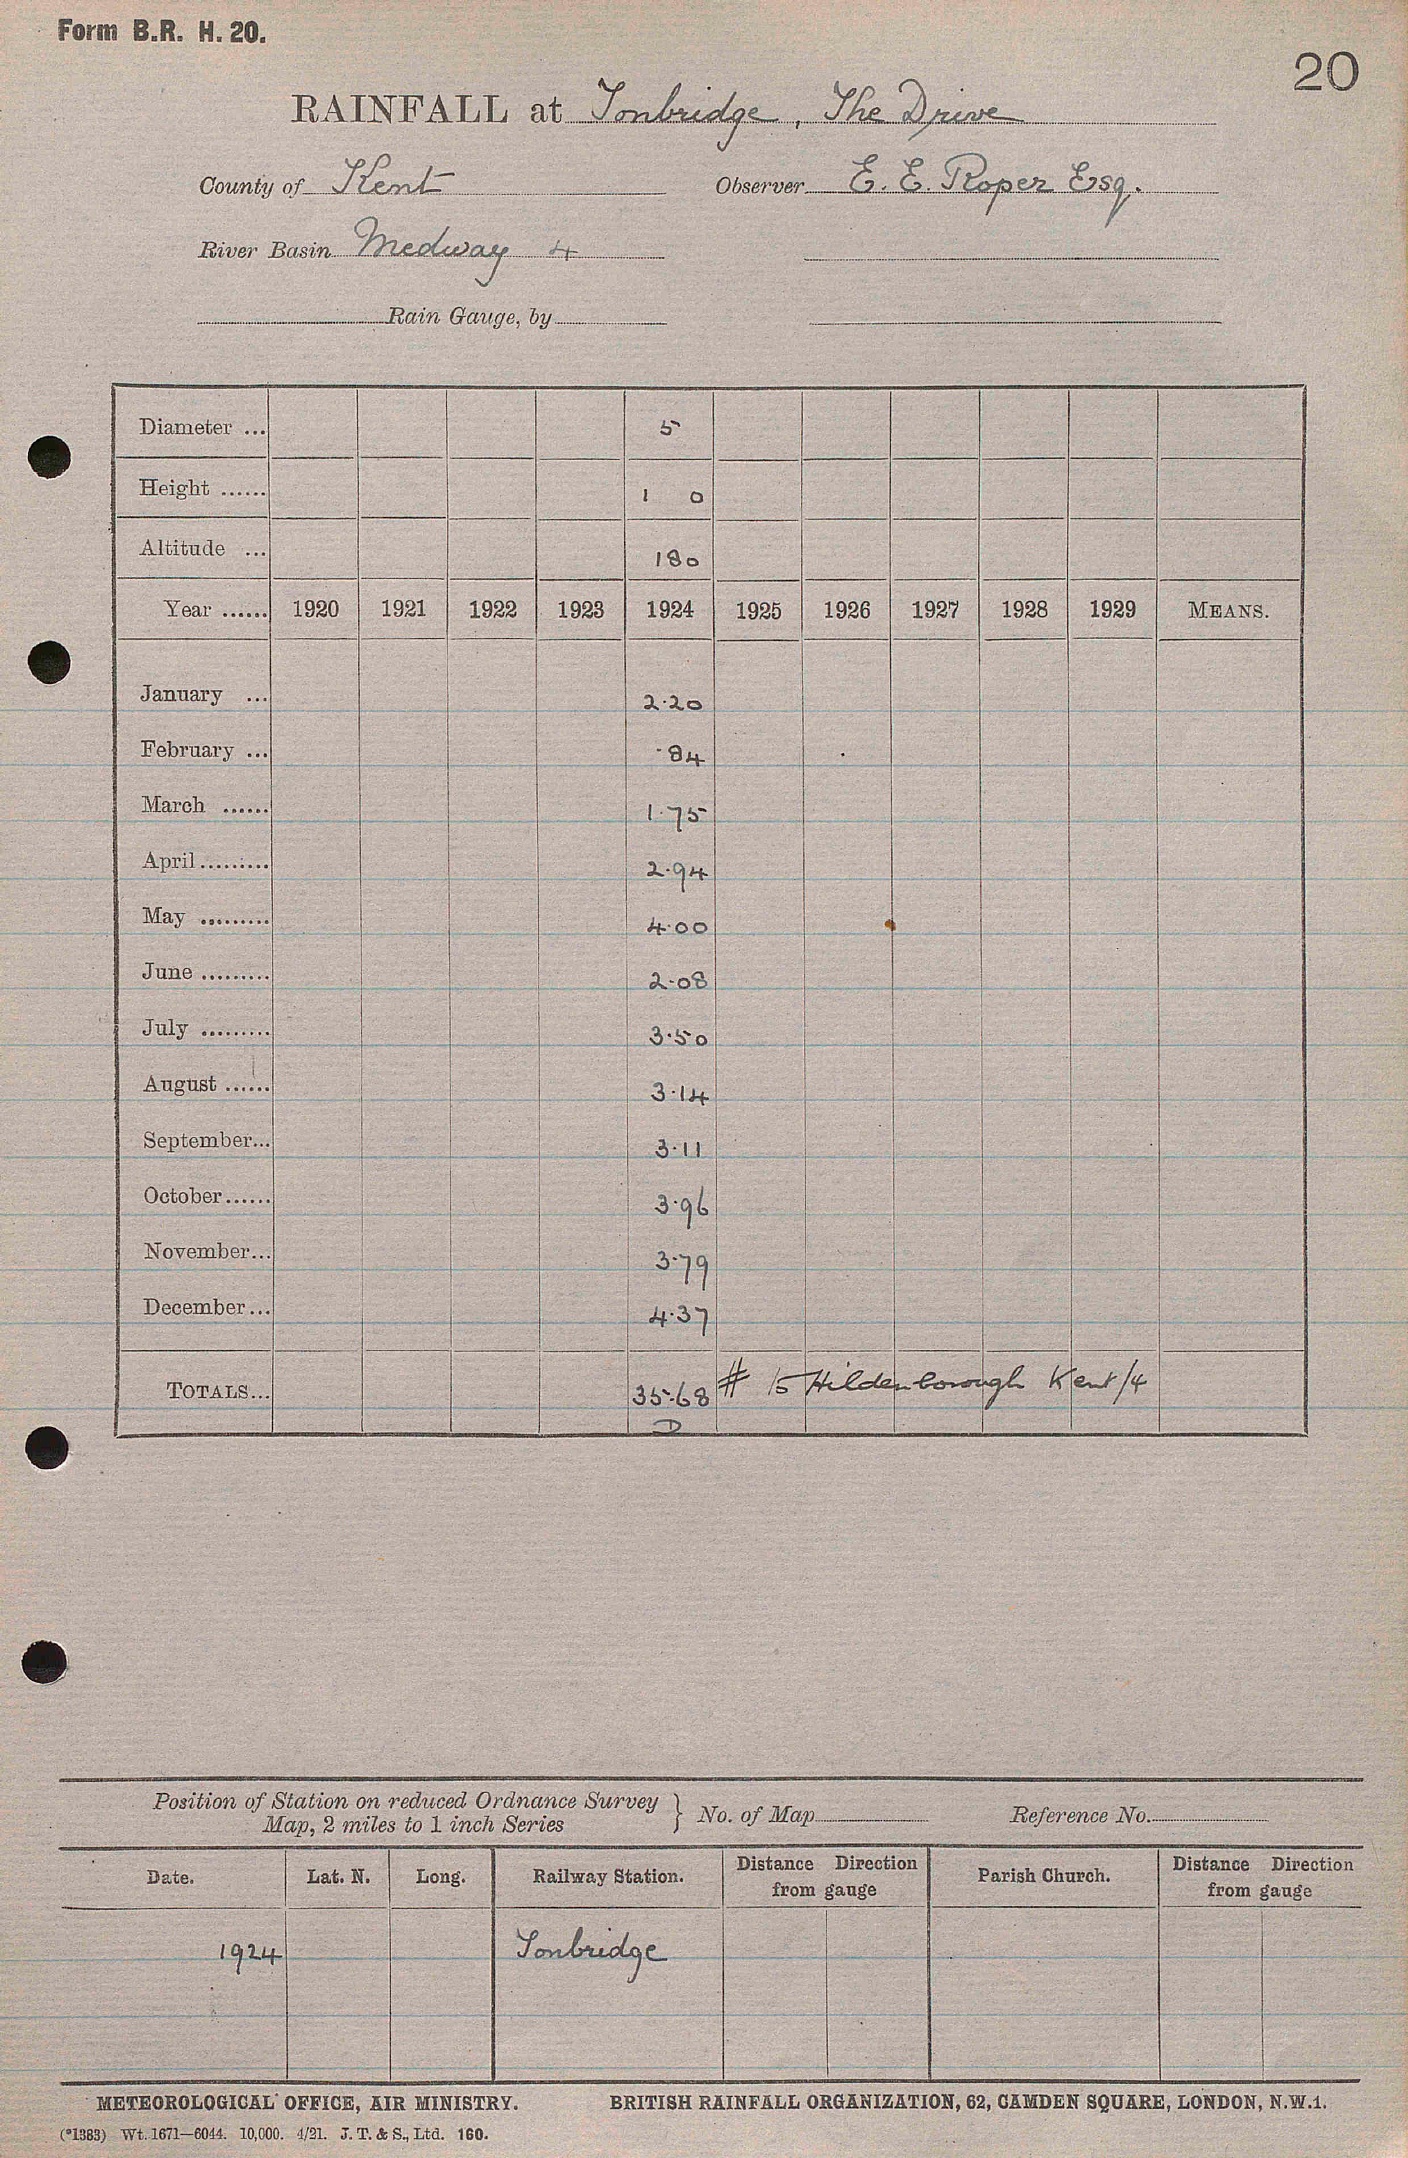 Form B.R. H. 20.
20
RAINFALL at Tonbridge, The Drive
County of Kent Observer E. E. Roper Esq.
River Basin Medway 4
Rain Gauge, by
Diameter ... 5
Height ...... 1 0
Altitude ... 180
Year ...... 1920 1921 1922 1923 1924 1925 1926 1927 1928 1929 MEANS.
January ... 2.20
February ... .84
March ...... 1.75
April ......... 2.94
May ......... 4.00
June ......... 2.08
July ......... 3.50
August ...... 3.14
September... 3.11
October...... 3.96
November... 3.79
December... 4.37
TOTALS... 35.68 # 15 Hildenborough Kent/4
D
Position of Station on reduced Ordnance Survey
Map, 2 miles to 1 inch Series } No. of Map Reference No.
Date. Lat. N. Long. Railway Station. Distance Direction from gauge Parish Church. Distance Direction from gauge
1924 Tonbridge
METEOROLOGICAL OFFICE, AIR MINISTRY. BRITISH RAINFALL ORGANIZATION, 62, CAMDEN SQUARE, LONDON, N.W.1.
(*1383) Wt. 1671—6044. 10,000. 4/21. J. T. & S., Ltd. 160.